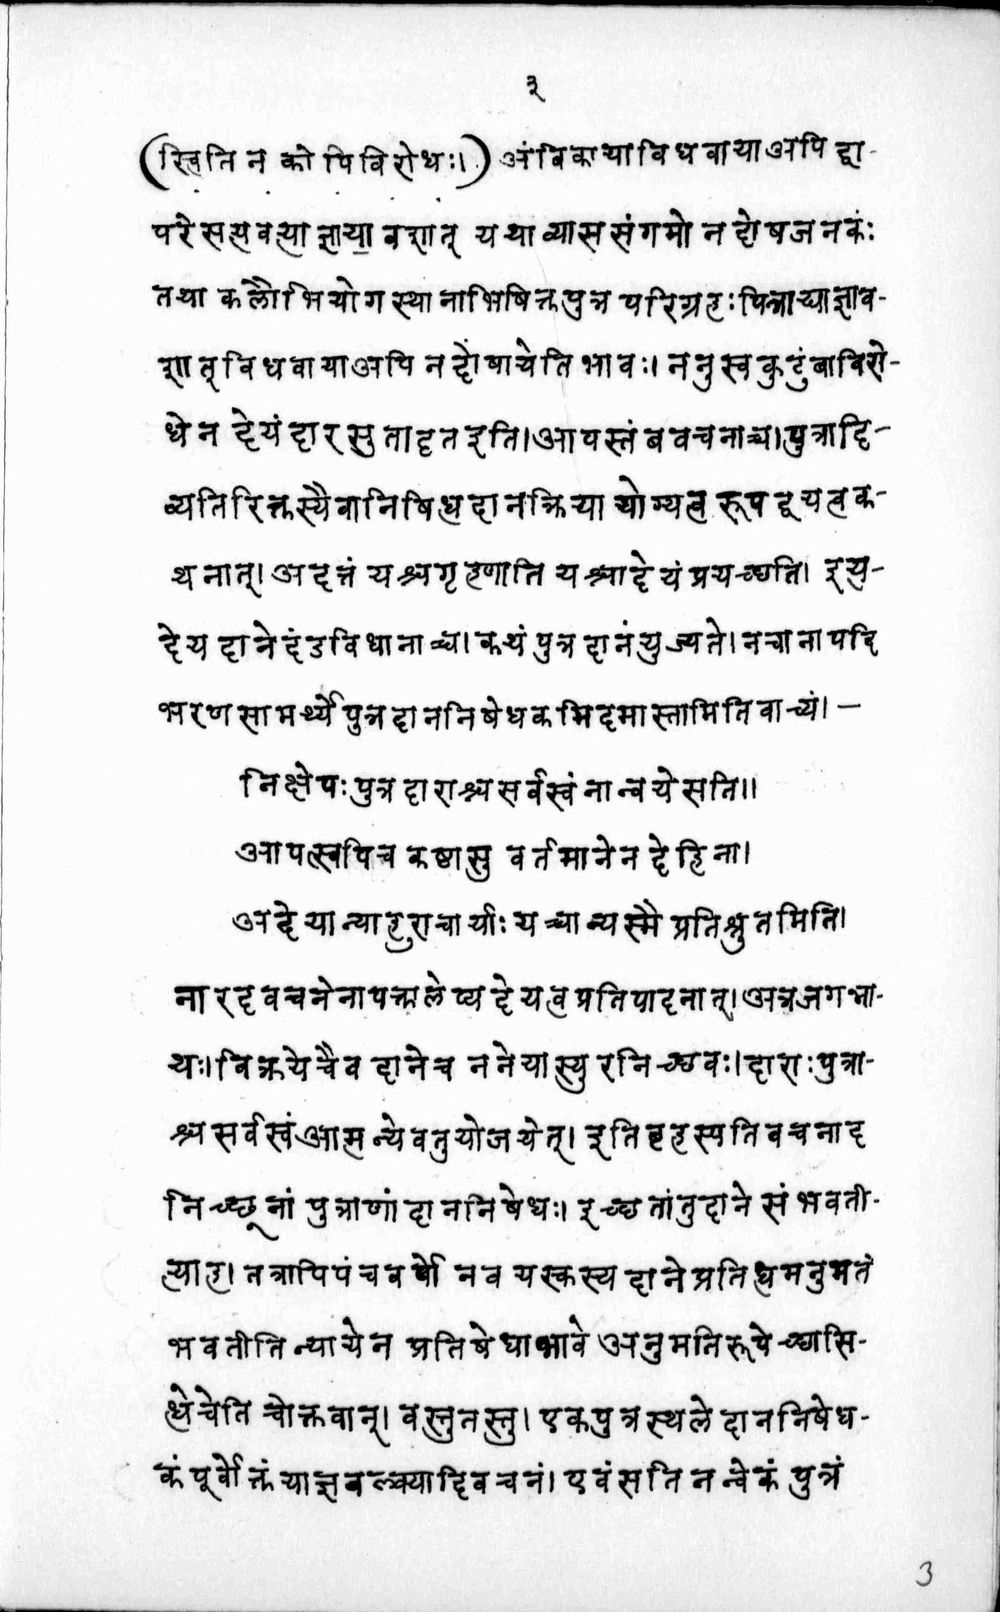 ३
(स्विति न कोपिविरोधः।) अंबिकायाविधवायाअपि द्वा-
परे सत्यवत्याज्ञाया वशात् यथा व्याससंगमो न दोषजनकः
तथा कलौभियोगस्थानाभिषिक्तपुत्र परिग्रहः पित्राद्याज्ञाव-
शात् विधवायाअपि न दोषायेति भावः। ननुस्वकुटुंबाविरो-
धेन देयं दारसुतादृत इति।आपस्तंबवचनाच्च।पुत्रादि-
व्यतिरिक्तस्यैवानिषिद्धदानक्रियायोग्यत्वरूपदूयत्वक-
थनात्। अदत्तं यश्चगृह्णाति यश्चादेयं प्रयच्छति। इत्यु-
देयदानेदंडविधानाच्च। कथं पुत्रदानंयुज्यते। नचानापदि
भरणसामर्थ्ये पुत्रदाननिषेधकमिदमास्तामितिवाच्यं। —
निक्षेपः पुत्रदाराश्च सर्वस्वं नान्वयेसति॥
आपत्स्वपिच कष्टासु वर्तमानेन देहिना।
अदेयान्याहुराचार्याः यच्चान्यस्मै प्रतिश्रुतमिति।
नारदवचनेनापत्कालेप्यदेयत्वप्रतिपादनात्। अत्रजगन्ना-
थः। विक्रयेचैव दानेच ननेयास्युरनिच्छवः। दाराः पुत्रा-
श्च सर्वस्वंआत्मन्येवतुयोजयेत्। इति बृहस्पतिवचनाद
निच्छूनां पुत्राणां दाननिषेधः। इच्छतांतुदाने संभवती-
त्याह। तत्रापिपंचवर्षो नवयस्कस्य दाने प्रतिद्धमनुमतं
भवतीतिन्यायेन प्रतिषेधाभावे अनुमतिरूपेच्छासि-
द्धेचेति चोक्तवान्। वस्तुतस्तु। एकपुत्रस्थले दाननिषेध-
कं पूर्वोक्तं याज्ञवल्क्यादिवचनं। एवंसति नन्वेकं पुत्रं
3